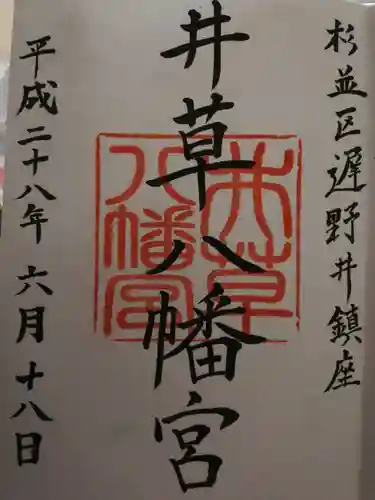 杉並区遅野井鎮座
井草八幡宮
平成二十八年 六月十八日
井草
八幡宮